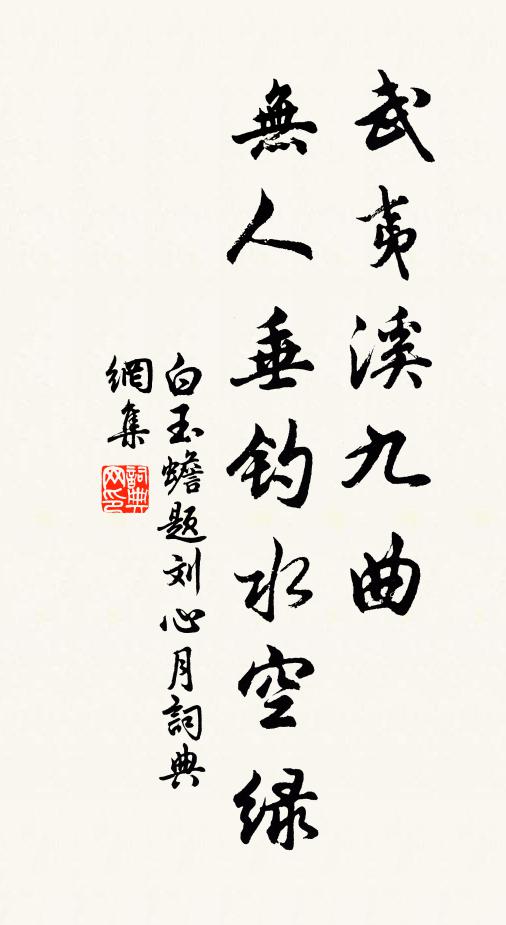 武夷溪九曲
無人垂钓水空緑
白玉蟾题刘心月詞典
網集
詞典網印